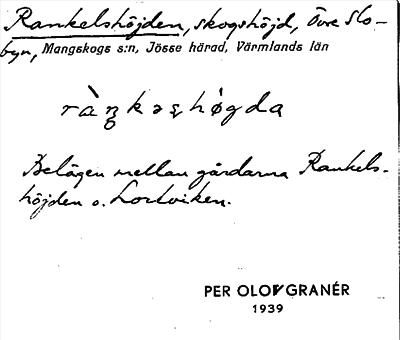 Rankelshöjden, skogshöjd, Övre Slo-
byn, Mangskogs s:n, Jösse härad, Värmlands län
ràŋkəshǿgda
Belägen mellan gårdarna Rankels-
höjden o. Lortviken.
PER OLOV GRANÉR
1939